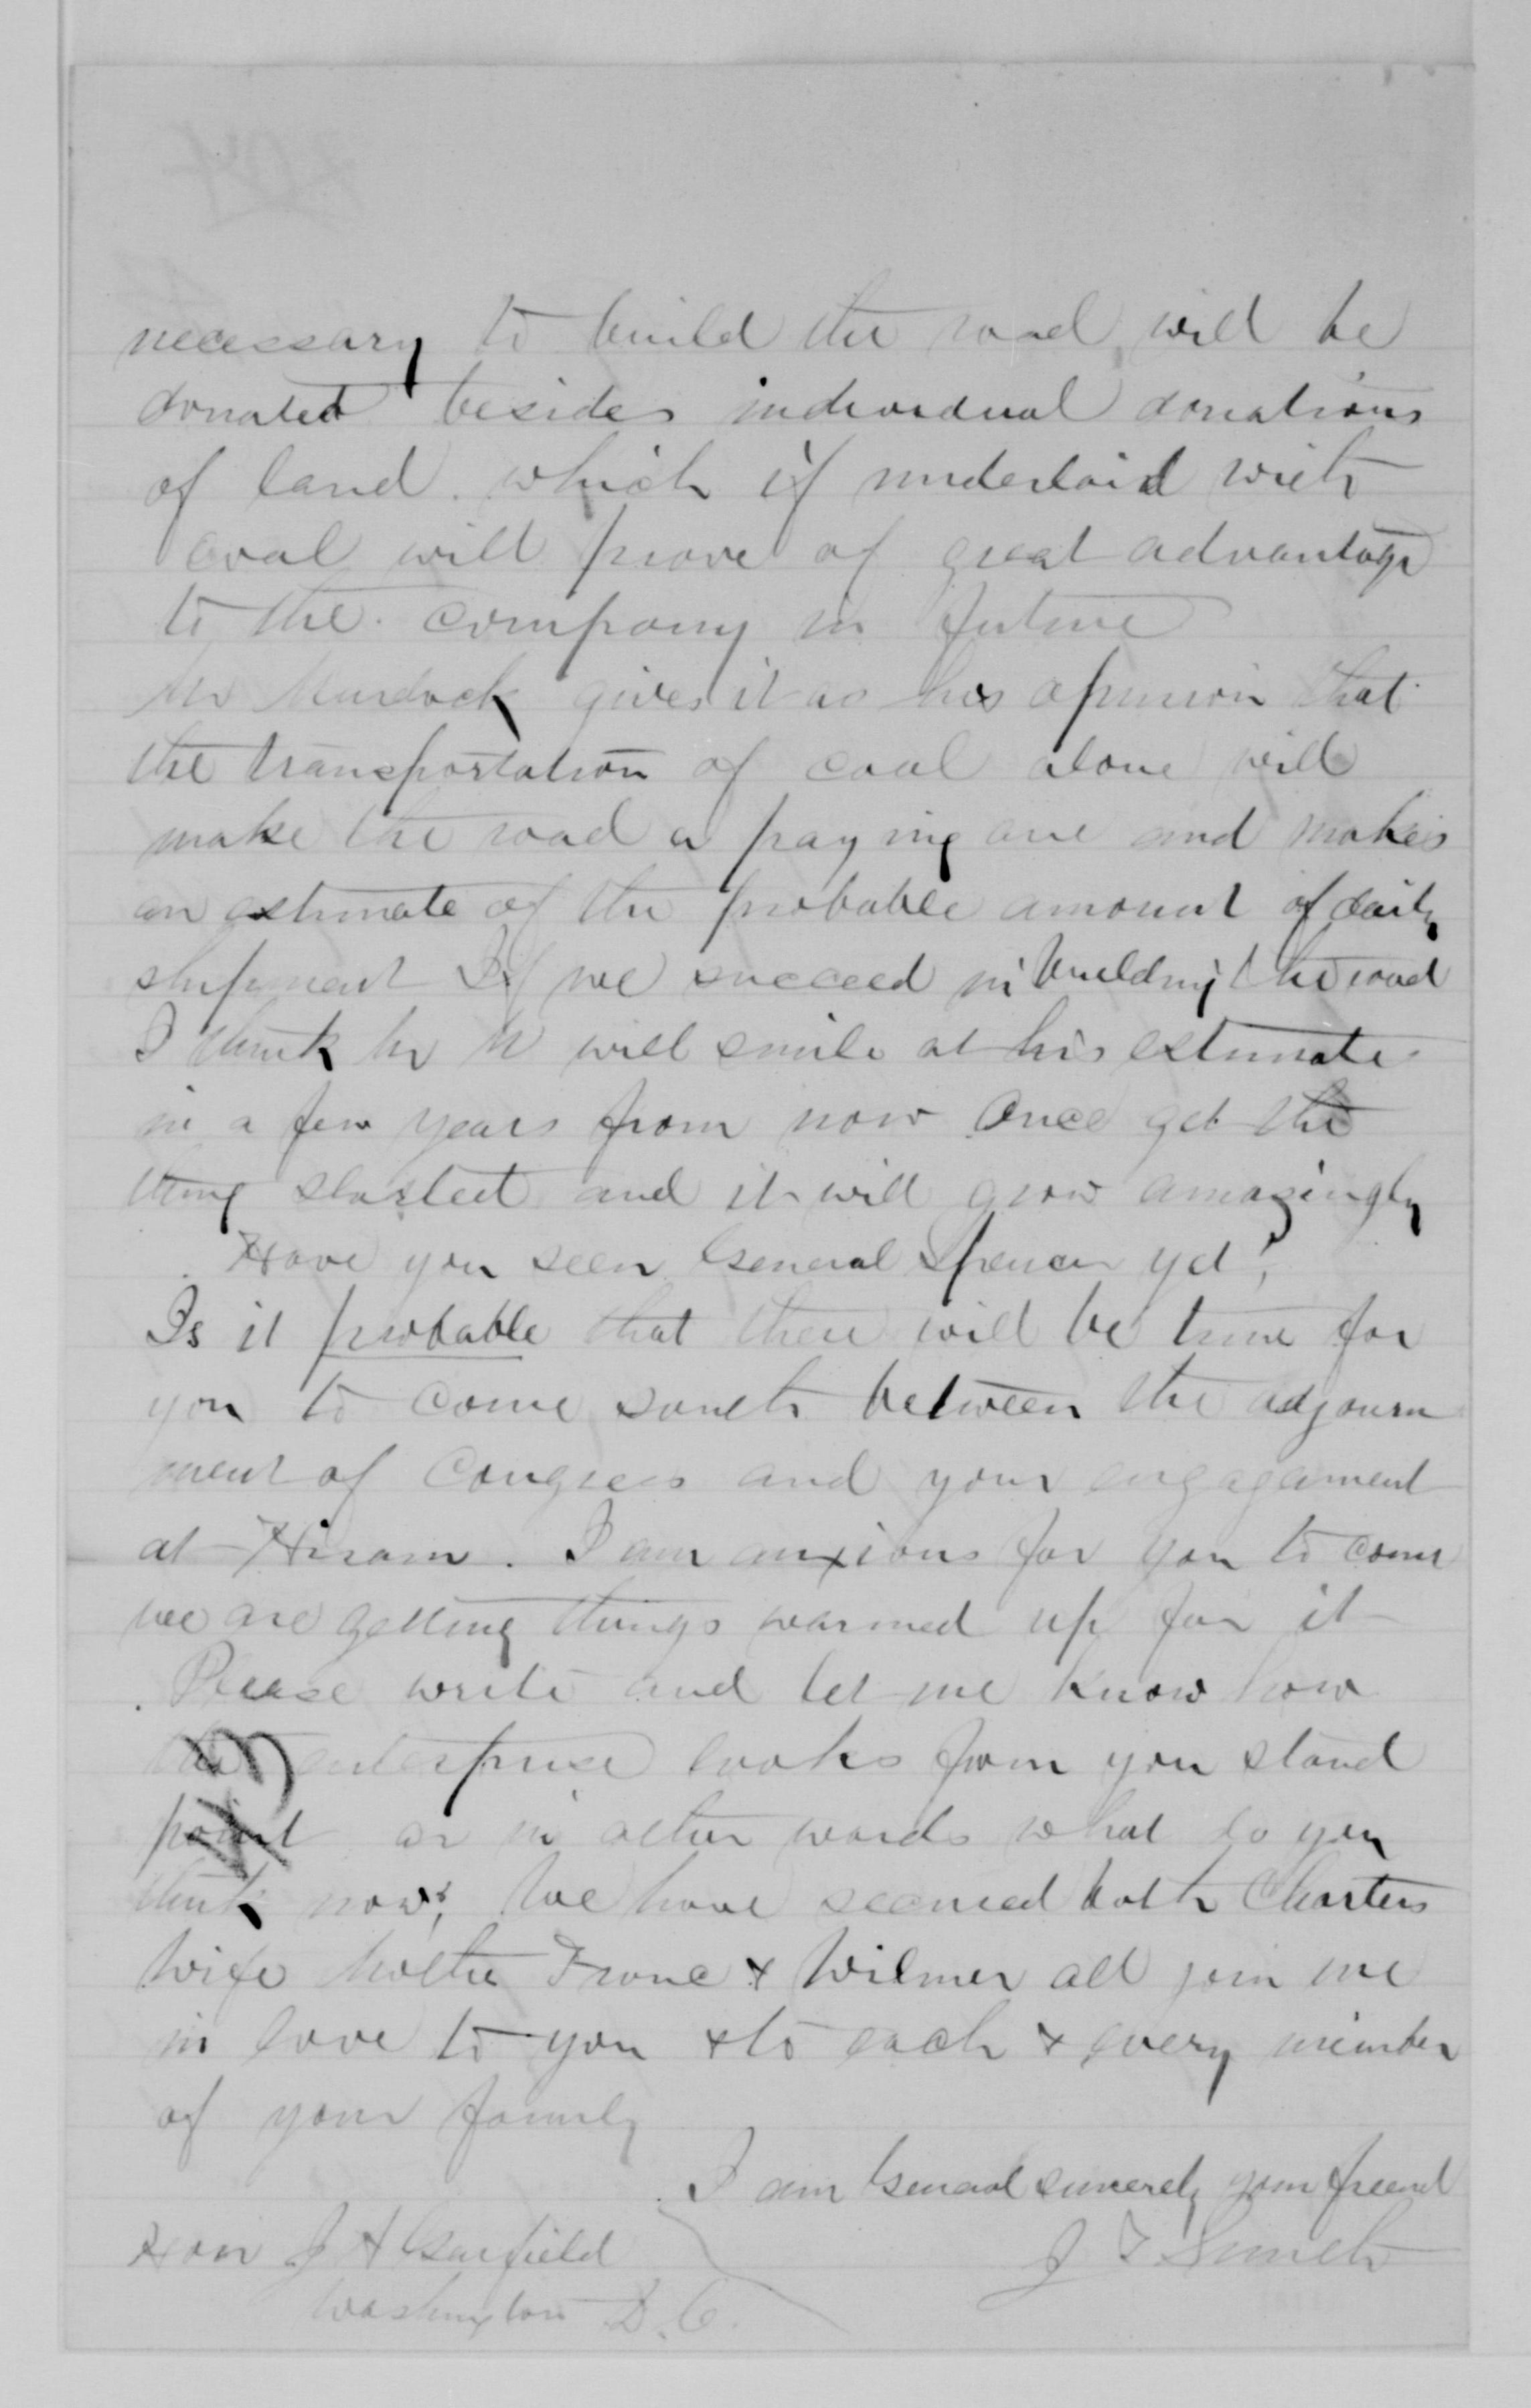 necessary to build the road, will be
donated besides individual donations
of land. which if underlaid with
coal will prove of great advantage
to the company in future
Mr Murdock gives it as his opinion that
the transportation of coal alone will
make the road a paying one and makes
an estimate of the probable amount of daily
shipment If we succeed in building the road
I think Mr M will smile at his estimate
in a few years from now Once get the
thing started and it will grow amazingly
Have you seen General Spencer yet?
Is it probable that there will be time for
you to come south between the adjourn
ment of Congress and your engagement
at Hiram. I am anxious for you to come
we are getting things warmed up for it
Please write and let me know how
the enterprise looks from you stand
point or in other words what do you
think now? We have secured both Charters
Wife & Wilmer all join me
in love to you & to each & every member
of your family
I am General sincerely your friend
J Smith
Hon J A Garfield
Washington D.C.